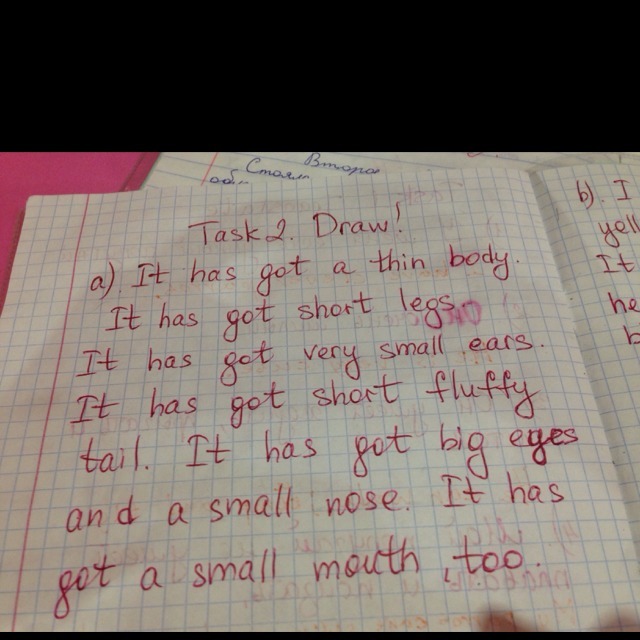 Второе
Стоят
об
Task 2. Draw!
a) It has got a thin body.
It has got short legs.
It has got very small ears.
It has got short fluffy
tail. It has got big eyes
and a small nose. It has
got a small mouth, too.
b). I
yell
It
he
b